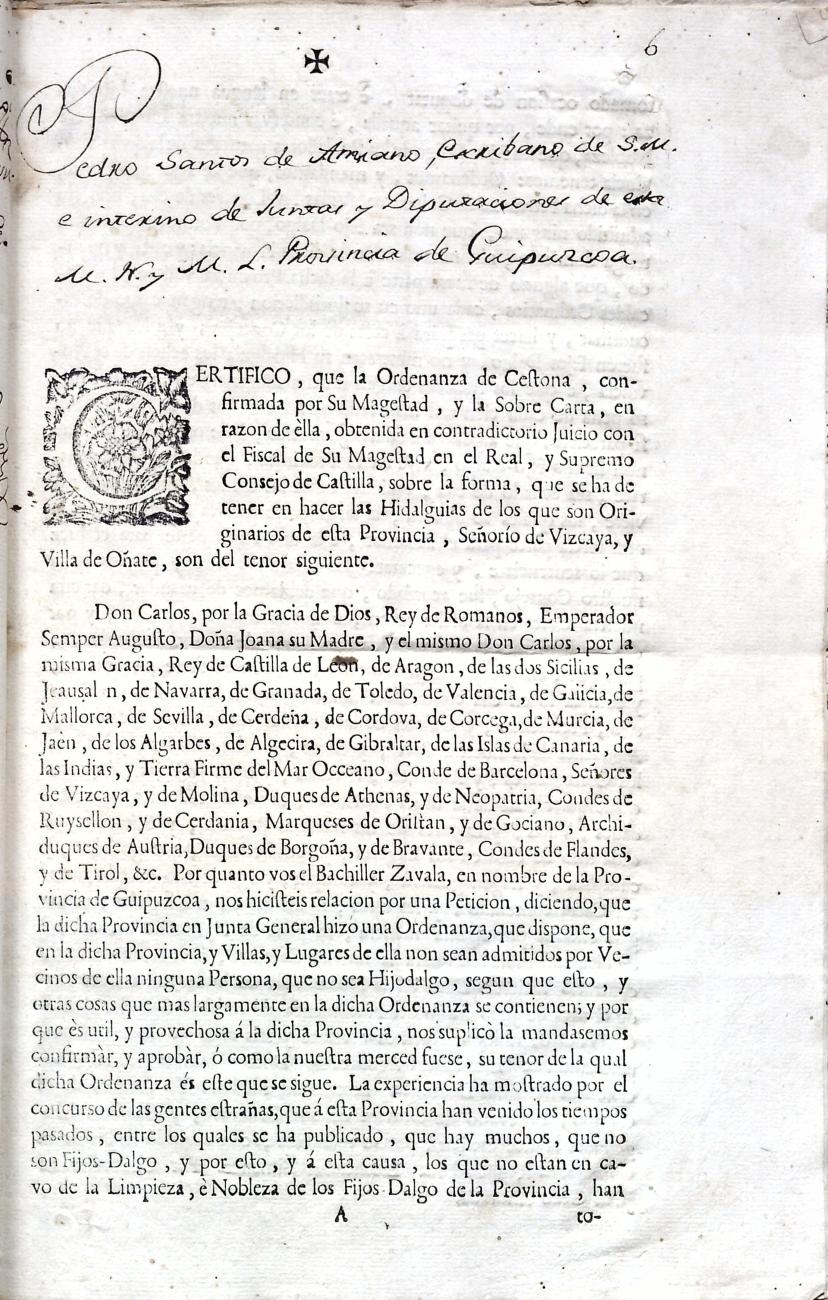 ✠
6
Pedro Santos de Amiano, Escribano de S.M.
e interino de Juntas y Diputaciones de esta
M. N. y M. L. Provincia de Guipuzcoa.
CERTIFICO, que la Ordenanza de Ceſtona, con-
firmada por Su Mageſtad, y la Sobre Carta, en
razon de èlla, obtenida en contradictorio Juicio con
el Fiscal de Su Mageſtad en el Real, y Supremo
Consejo de Caſtilla, sobre la forma, que se ha de
tener en hacer las Hidalguias de los que son Ori-
ginarios de eſta Provincia, Señorío de Vizcaya, y
Villa de Oñate, son del tenor siguiente.
Don Carlos, por la Gracia de Dios, Rey de Romanos, Emperador
Semper Auguſto, Doña Joana su Madre, y el mismo Don Carlos, por la
misma Gracia, Rey de Caſtilla de Leon, de Aragon, de las dos Sicilias, de
Jeausal n, de Navarra, de Granada, de Toledo, de Valencia, de Galicia, de
Mallorca, de Sevilla, de Cerdeña, de Cordova, de Corcega, de Murcia, de
Jaèn, de los Algarbes, de Algecira, de Gibraltar, de las Islas de Canaria, de
las Indias, y Tierra Firme del Mar Occeano, Conde de Barcelona, Señores
de Vizcaya, y de Molina, Duques de Athenas, y de Neopatria, Condes de
Ruysellon, y de Cerdania, Marqueses de Oriſtan, y de Gociano, Archi-
duques de Auſtria, Duques de Borgoña, y de Bravante, Condes de Flandes,
y de Tirol, &c. Por quanto vos el Bachiller Zavala, en nombre de la Pro-
vincia de Guipuzcoa, nos hiciſteis relacion por una Peticion, diciendo, que
la dicha Provincia en Junta General hizo una Ordenanza, que dispone, que
en la dicha Provincia, y Villas, y Lugares de ella non sean admitidos por Ve-
cinos de ella ninguna Persona, que no sea Hijodalgo, segun que eſto, y
otras cosas que mas largamente en la dicha Ordenanza se contienen; y por
que ès util, y provechosa á la dicha Provincia, nos suplicò la mandasemos
confirmàr, y aprobàr, ó como la nueſtra merced fuese, su tenor de la qual
dicha Ordenanza és eſte que se sigue. La experiencia ha moſtrado por el
concurso de las gentes eſtrañas, que á eſta Provincia han venido los tiempos
pasados, entre los quales se ha publicado, que hay muchos, que no
son Fijos-Dalgo, y por eſto, y á eſta causa, los que no eſtan en ca-
vo de la Limpieza, è Nobleza de los Fijos-Dalgo de la Provincia, han
A to-